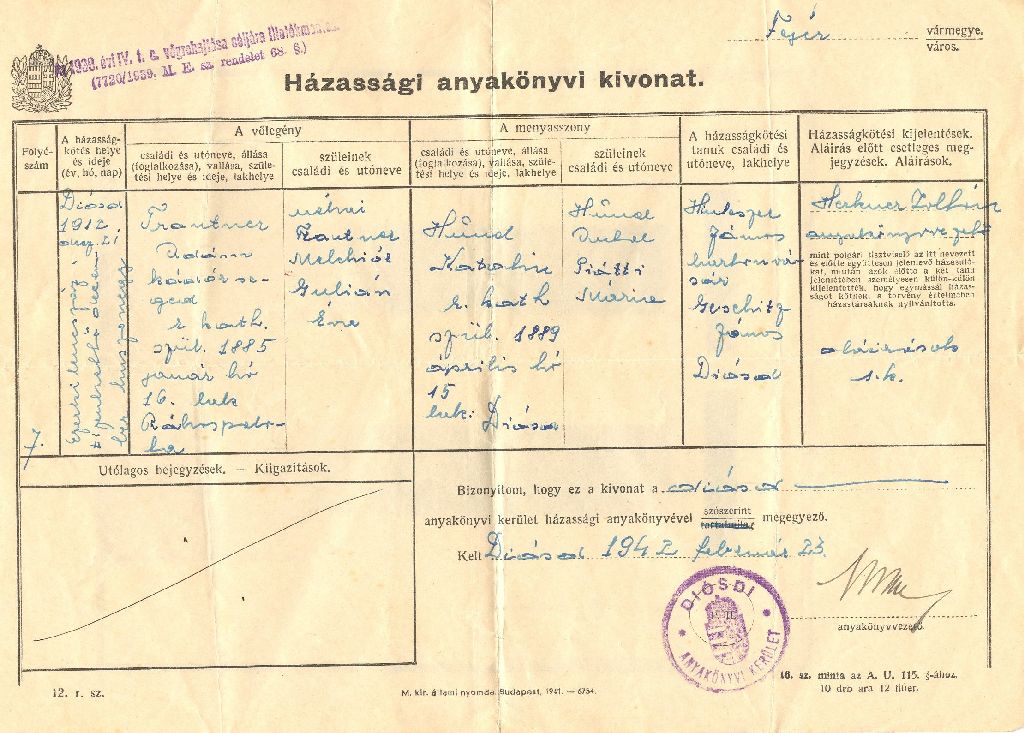 Fejér vármegye.
város.
1939. évi IV. t. c. végrehajtása céljára
(7720/1939. M. E. sz. rendelet 68 §.)
Házassági anyakönyvi kivonat.
Folyó-
szám
A házasság-
kötés helye
és ideje
(év, hó, nap)
A vőlegény
családi és utóneve, állása
(foglalkozása), vallása, szüle-
tési helye és ideje, lakhelye
szüleinek
családi és utóneve
A menyasszony
családi és utóneve, állása
(foglalkozása), vallása, szüle-
tési helye és ideje, lakhelye
szüleinek
családi és utóneve
A házasságkötési
tanuk családi és
utóneve, lakhelye
Házasságkötési kijelentések.
Aláírás előtt esetleges meg-
jegyzések. Aláírások.
7.
Diósd
1912
aug. 21
Trautner
Ádám
kádár se-
géd
r. kath.
szül. 1885
január hó
16. lak
néhai
Trautner
Melchiór
Gulián
Éva
Hünd
Katalin
r. kath
szül. 1889
április hó
15
lak: Diósd
Hünd
Mária
János
Geschitz
János
Diósd
Herkner Zoltán
anyakönyvvezető
mint polgári tisztviselő az itt nevezett
és előtte együttesen jelenlevő házasuló-
kat, miután azok előtte a két tanu
jelenlétében személyesen külön-külön
kijelentették, hogy egymással házas-
ságot kötnek, a törvény értelmében
házastársaknak nyilvánította.
aláírások
s.k.
Utólagos bejegyzések. — Kiigazítások.
Bizonyítom, hogy ez a kivonat a diósdi
anyakönyvi kerület házassági anyakönyvével szószerint megegyező.
tartalmilag
Kelt Diósd 1942 február 23.
anyakönyvvezető
DIÓSDI
ANYAKÖNYVI KERÜLET
12. r. sz.
M. kir. állami nyomda. Budapest, 1941. — 6754.
16. sz. minta az A. U. 115. §-ához.
10 drb ára 12 fillér.